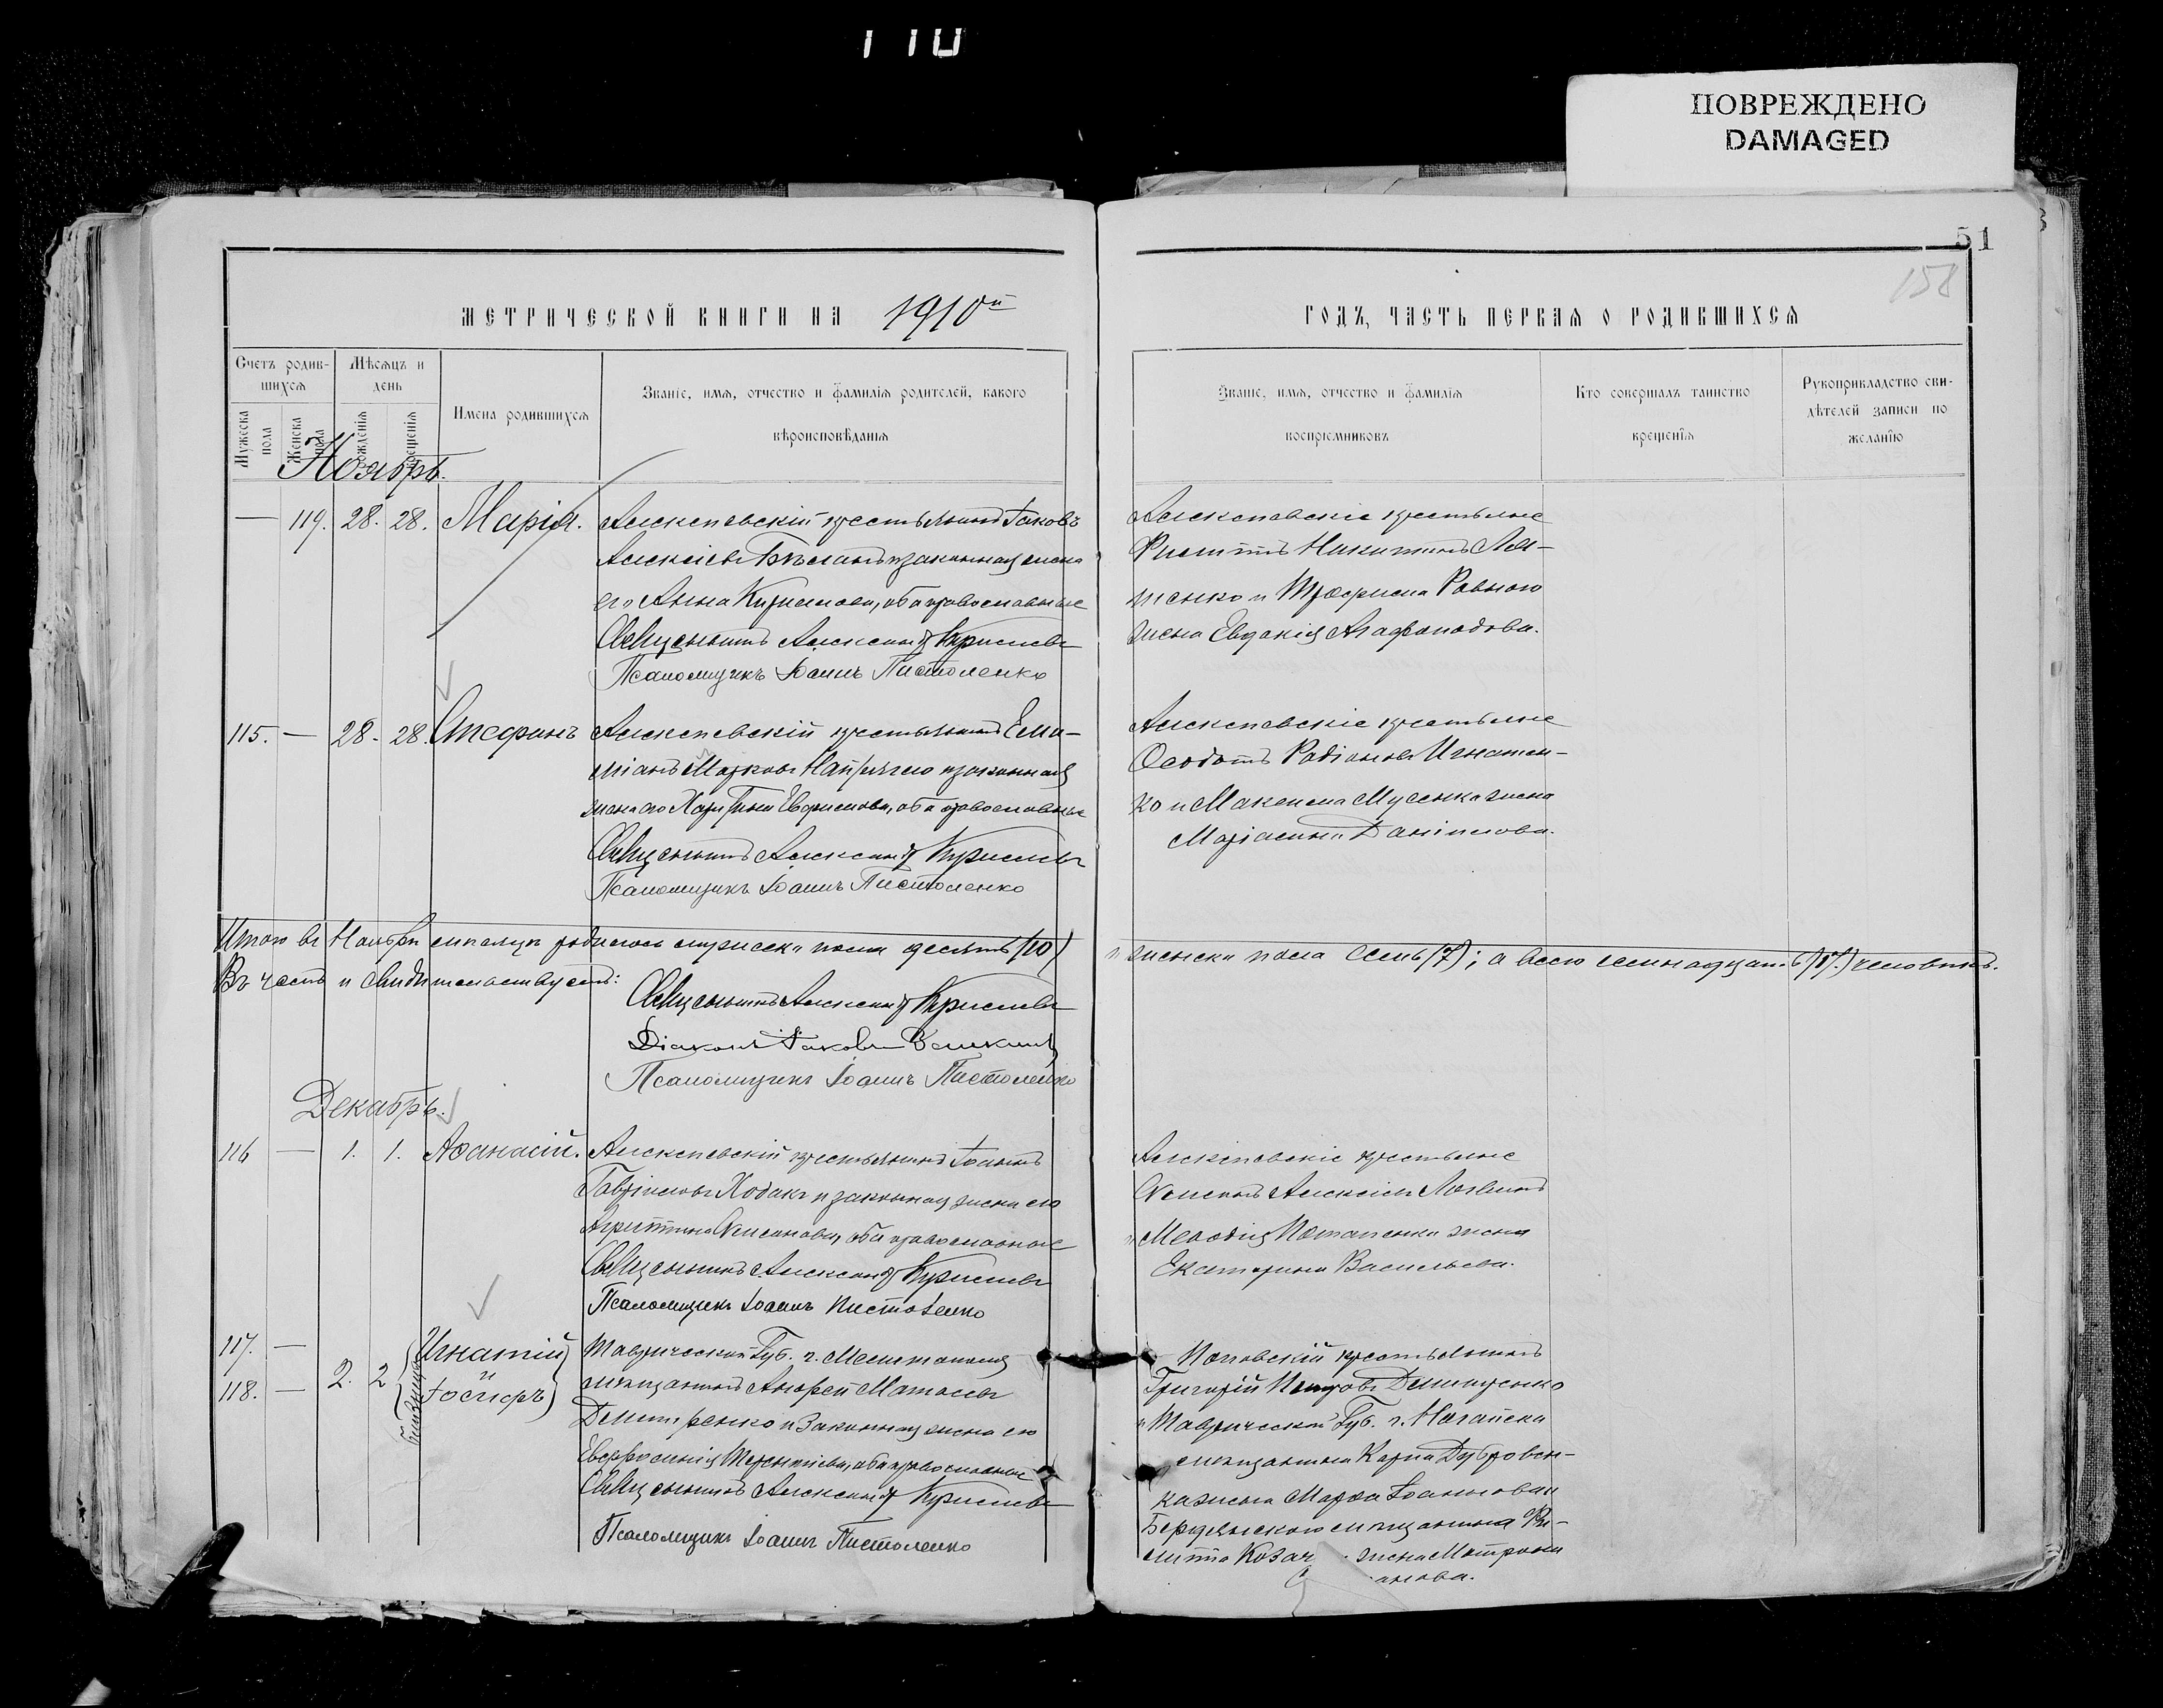 110
ПОВРЕЖДЕНО
DAMAGED
51
158
МЕТРИЧЕСКОЙ КНИГИ НА 1910й
ГОДЪ, ЧАСТЬ ПЕРВАЯ О РОДИВШИХСЯ
Счетъ родив-
шихся
Мѣсяцъ и
день
Мужеска
пола
Женска
пола
рожденія
крещенія
Имена родившихся
Званіе, имя, отчество и фамилія родителей, какого
вѣроисповѣданія
Званіе, имя, отчество и фамилія
воспріемниковъ
Кто совершалъ таинство
крещенія
Рукоприкладство сви-
дѣтелей записи по
желанію
Ноябрь.
— 119. 28. 28. Марія.
Алексѣевскій крестьянинъ Іаковъ
Алексіевъ и законная жена
его Анна Кириллова, оба православные
Священникъ Александръ
Псаломщикъ Іоаннъ Пистоленко
Алексѣевскіе крестьяне
Филиппъ Никитинъ Ля-
шенко и Трофима Равного
жена Евдокія Агафонодова.
115. — 28. 28. Стефанъ
Алексѣевскій крестьянинъ Еми-
ліанъ Марковъ и законная
жена его Харитина Евфимова, оба православные
Священникъ Александръ
Псаломщикъ Іоаннъ Пистоленко
Алексѣевскіе крестьяне
Ѳеодотъ Родіоновъ Игнатен-
ко и Максима Мусенка жена
Маріамна Даніилова.
Итого въ Ноябрѣ мѣсяцѣ родилось мужеска пола десять (10)
и женска пола семь (7); а всего семнадцать (17) человѣкъ.
Въ чемъ и свидѣтельствуемъ:
Священникъ Александръ
Діаконъ Іаковъ
Псаломщикъ Іоаннъ Пистоленко
Декабрь.
116 — 1. 1. Аѳанасій.
Алексѣевскій крестьянинъ Іоаннъ
Гавріиловъ Ходакъ и законная жена его
Агриппина оба православные
Священникъ Александръ
Псаломщикъ Іоаннъ Пистоленко
Алексѣевскіе крестьяне
Алексіевъ
и Меѳодія Потапенка жена
Екатерина Васильева.
117. —
118. —
2. 2
близнецы
Игнатій
и
Іосифъ
Таврической Губ. г. Мелитополя
мѣщанинъ Андрей
и законная жена его
Евфросинія Терентіева, оба православные
Священникъ Александръ
Псаломщикъ Іоаннъ Пистоленко
Поповскій крестьянинъ
Григорій Петровъ
и Таврической Губ. г. Ногайска
мѣщанина Карпа Дубровен-
ка жена Марѳа Іоаннова и
Бердянскаго мѣщанина Фи-
липпа жена Матрона